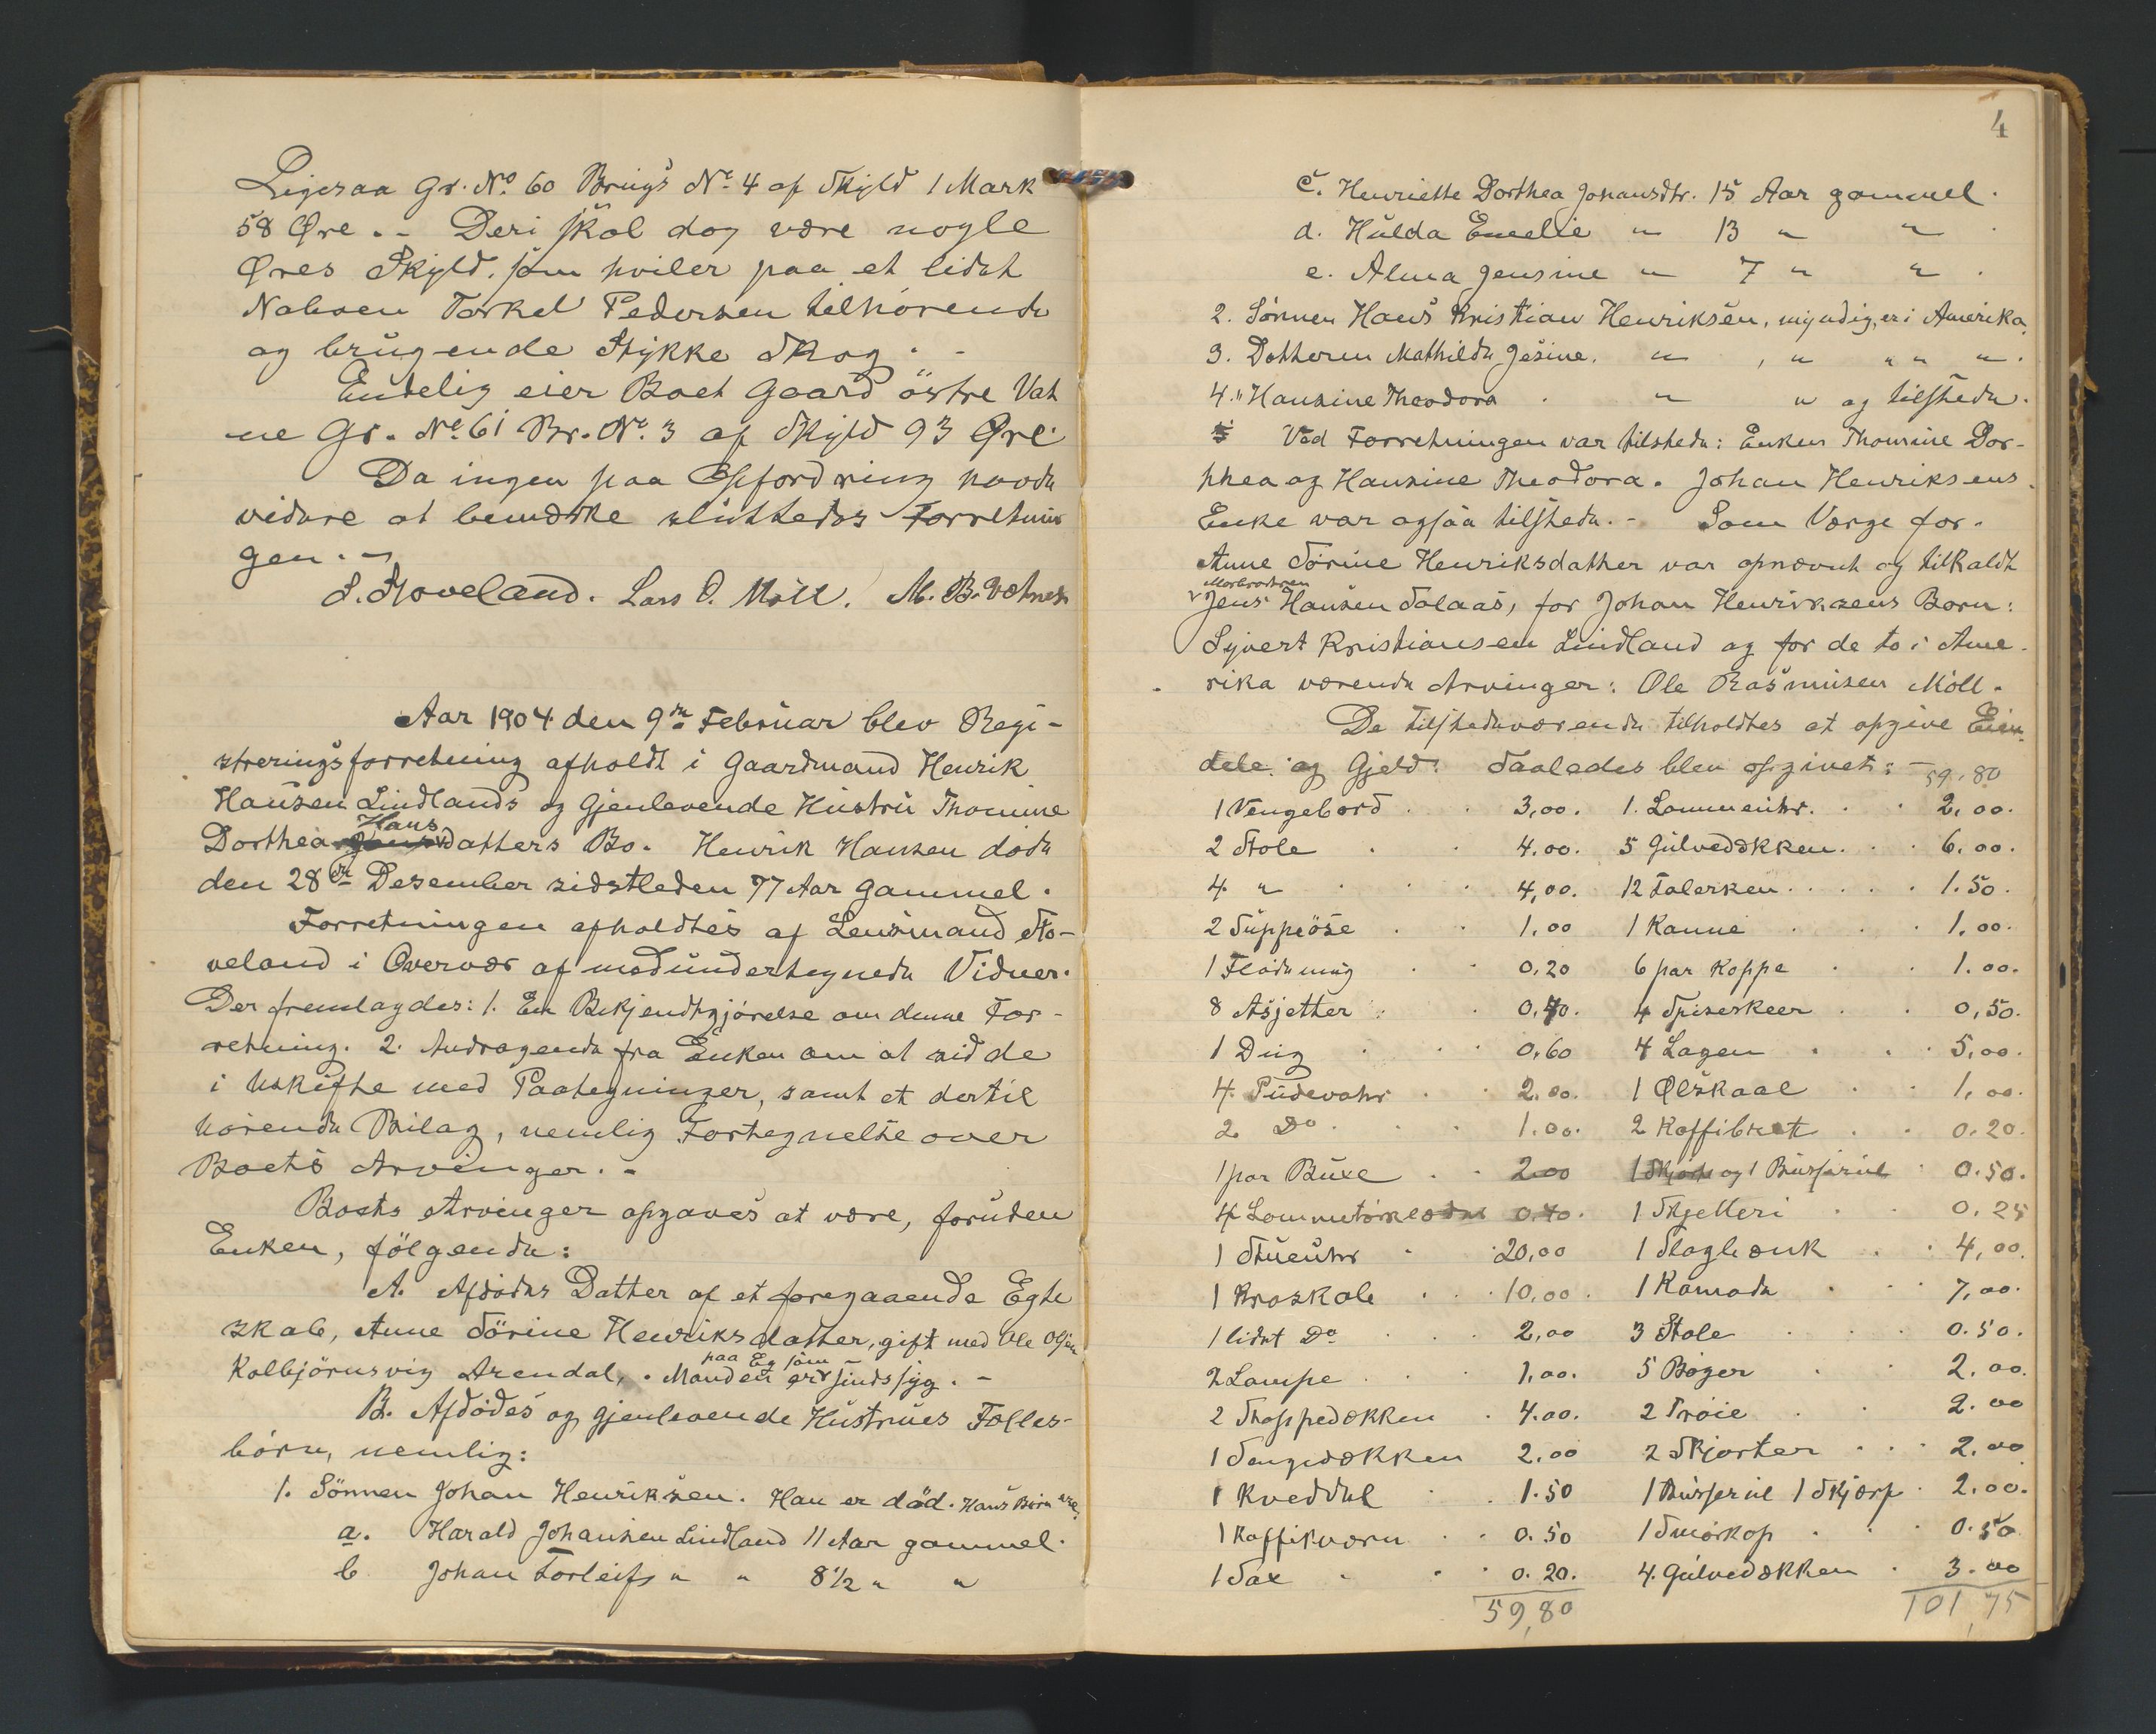 Ligesaa Gr. No. 60 Brugs No. 4 af Skyld 1 Mark
58 Øre. - Deri skal dog være nogle
Øres Skyld, som hviler paa et lidet
Naboen Torkel Pedersen tilhørende
og brugende Stykke Skog. -
Endelig eier Boet Gaard östre Vat
ne Gr. No. 61 Br. No. 3 af Skyld 93 Øre
Da ingen paa Opfordring havde
videre at bemærke sluttedes Forretnin
gen. -
S. Stoveland. Lars O. Möll. M. B. Vatnes
Aar 1904 den 9de Februar blev Regi-
streringsforretning afholdt i Gaardmand Henrik
Hansen Lindlands og gjenlevende Hustru Thomine
Hans
Dorthea datters Bo. Henrik Hansen døde
den 28de Desember sidstleden 77 Aar gammel.
Forretningen afholdtes af Lensmand Sto-
veland i Overvær af medundertegnede Vidner.
Der fremlagdes: 1. En Bekjendtgjörelse om denne For-
retning. 2. Andragende fra Enken om at sidde
i Uskifte med Paategninger, samt et dertil
hörende Bilag, nemlig Fortegnelse over
Boets Arvinger. -
Boets Arvinger opgaves at være, foruden
Enken, fölgende:
A. Afdödes Datter af et foregaaende Egte
skab, Anne Sörine Henriksdatter, gift med Ole Olsen
paa Eg som
Kolbjörnsvig Arendal, . Manden er sindssyg. -
B. Afdödes og gjenlevende Hustrues Fælles-
börn, nemlig:
1. Sönnen Johan Henriksen. Han er död. Hans Börn ere,
a. Harald Johansen Lindland 11 Aar gammel.
b Johan Torleifs " " 8 1/2 " "
4
c. Henriette Dorthea Johansdtr. 15 Aar gammel.
d. Hulda Emelie " 13 " " .
e. Alma Jensine " 7 " " .
2. Sönnen Hans Kristian Henriksen, myndig, er i Amerika.
3. Datteren Mathilde Jesine, " , " " " " .
4. " Hansine Theodora . " " og tilstede.
Ved Forretningen var tilstede: Enken Thomine Dor-
thea og Hansine Theodora. Johan Henriksens
Enke var ogsaa tilstede. - Som Værge for
Anne Sörine Henriksdatter var opnævnt og tilkaldt
Morbroderen
Jens Hansen Salaas, for Johan Henriksens Börn:
Syvert Kristiansen Lindland og for de to i Ame-
rika værende Arvinger: Ole Rasmusen Möll.
De tilstedeværende tilholdtes at opgive Eien
dele og Gjeld: Saaledes blev opgivet: -
59,80
1 Vengebord . . 3,00. 1 Lommeuhr. . . 2,00.
2 Stole . . 4.00. 5 Gulvedækken. . . 6.00.
4 " . . . 4,00. 12 Talerken . . . . 1.50.
2 Suppeöse . . 1,00 1 Kanne . . . 1,00.
1 Flödemug . . 0,20 6 par Koppe . . 1.00.
8 Asjetter . . 0,40. 4 Spiseskeer . . 0,50.
1 Dug . . . 0,60 4 Lagen . . . 5,00.
4 Pudevahr . . 2,00. 1 Ølskaal . . 1,00.
2 Do. . . . 1.00. 2 Kaffibret . . 0.20.
1 par Buxe . . 2.00 og 1 Busserul . 0.50.
4 0,40. 1 Skjelleri . . 0.25
1 Stueuhr . 20,00 1 Slagbænk . . 4,00.
1 Kroskab . . . 10,00. 1 Komode . . 7,00.
1 lidet Do . . . 2,00 3 Stole . . . 0.50.
2 Lampe . . . 1,00. 5 Böger . . 2.00.
2 Stoppedækken . 4.00. 2 Tröie . . 2.00
1 Sengedækken 2,00 2 Skjorter . . . 2,00
1 Kveddel . . 1.50 1 Busserul 1 Skjærp . 2.00.
1 Kaffikværn . . 0.50 1 Smörkop . . . 0.50
1 Sax . . . 0.20. 4 Gulvedækken . 3.00
59,80 101,75